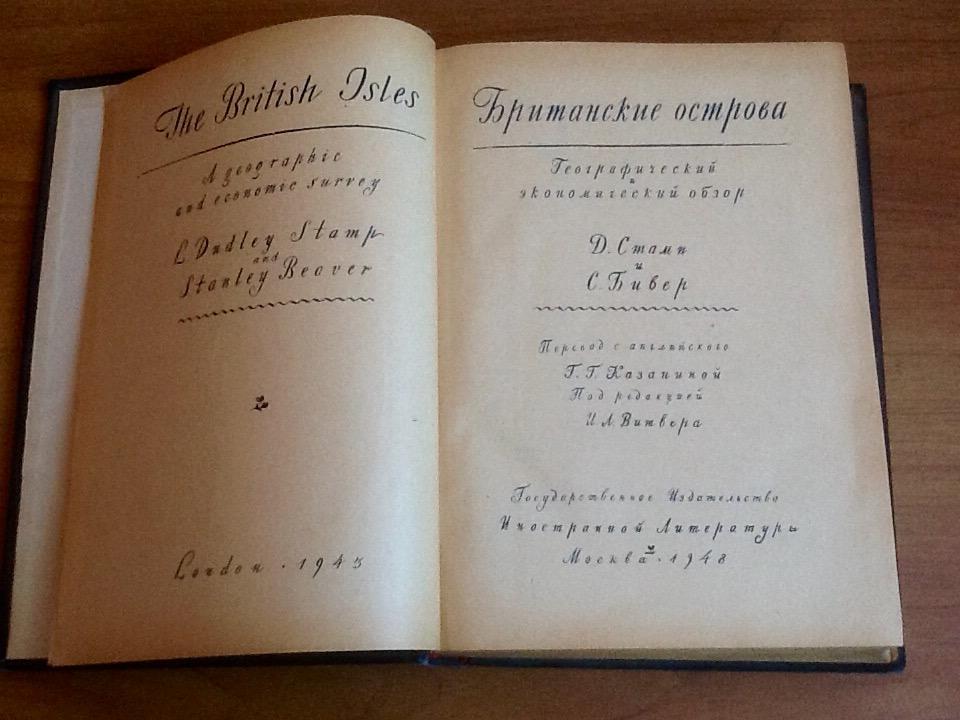 The British Isles
A geographic
and economic survey
L Dudley Stamp
and
Stanley Beaver
London · 1943
Британские острова
Географический
и
экономический обзор
Д. Стамп
и
С. Бивер
Перевод с английского
Г. Г. Казаниной
Под редакцией
И А. Витвера
Государственное Издательство
Иностранной Литературы
Москва · 1948